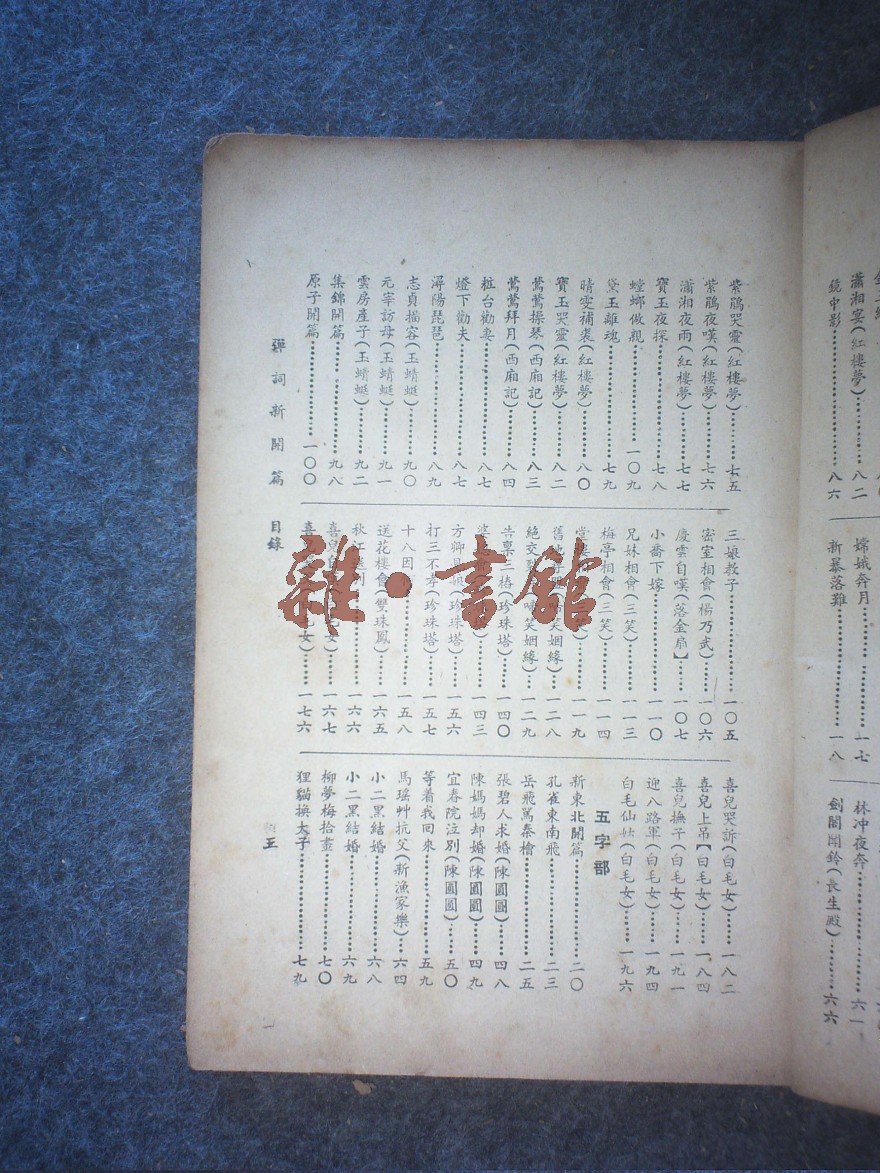 鏡中影⋯⋯八六
瀟湘宴(紅樓夢)⋯⋯八二
嫦娥奔月⋯⋯一七
新暴落難⋯⋯一八
林冲夜奔⋯⋯六一
劍閣聞鈴(長生殿)⋯⋯六六
紫鵑哭靈(紅樓夢)⋯⋯七五
紫鵑夜嘆(紅樓夢)⋯⋯七六
瀟湘夜雨(紅樓夢)⋯⋯七七
寶玉夜探⋯⋯七八
螳螂做親⋯⋯一〇九
黛玉離魂⋯⋯七九
晴雯補裘(紅樓夢)⋯⋯八〇
寶玉哭靈(紅樓夢)⋯⋯八二
鶯鶯操琴(西廂記)⋯⋯八三
鶯鶯拜月(西廂記)⋯⋯八四
粧台勸妻⋯⋯八七
燈下勸夫⋯⋯八七
潯陽琵琶⋯⋯八九
志貞描容(玉蜻蜓)⋯⋯九〇
元宰訪母(玉蜻蜓)⋯⋯九一
雲房產子(玉蜻蜓)⋯⋯九二
集錦開篇⋯⋯九八
原子開篇⋯⋯一〇〇
三娘教子⋯⋯一〇五
密室相會(楊乃武)⋯⋯一〇六
慶雲自嘆(落金扇】⋯⋯一〇七
小喬下嫁⋯⋯一一〇
兄妹相會(三笑)⋯⋯一一三
梅亭相會(三笑)⋯⋯一一四
堂⋯⋯一一九
舊⋯笑姻緣)⋯⋯一二八
絕交⋯啼笑姻緣)⋯⋯一二九
告稟二樁(珍珠塔)⋯⋯一四〇
婆⋯⋯一四三
方卿見娘(珍珠塔)⋯⋯一五六
打三不孝(珍珠塔)⋯⋯一五七
十八因⋯⋯一五八
送花樓會(雙珠鳳)⋯⋯一六五
秋江⋯⋯一六六
喜兒自⋯女)⋯⋯一六七
喜⋯女)⋯⋯一七六
喜兒哭訴(白毛女)⋯⋯一八二
喜兒上吊【白毛女)⋯⋯一八四
喜兒撫子(白毛女)⋯⋯一九一
迎八路軍(白毛女)⋯⋯一九四
白毛仙姑(白毛女)⋯⋯一九六
五字部
新東北開篇⋯⋯二〇
孔雀東南飛⋯⋯二三
岳飛罵秦檜⋯⋯二五
張碧人求婚(陳圓圓)⋯⋯四八
陳媽媽却婚(陳圓圓)⋯⋯四九
宜春院泣別(陳圓圓)⋯⋯五〇
等着我回來⋯⋯五九
馬瑤艸抗父(新漁家樂)⋯⋯六四
小二黑結婚⋯⋯六八
小二黑結婚⋯⋯六九
柳夢梅拾畫⋯⋯七〇
狸貓換太子⋯⋯七九
彈詞新開篇 目錄
五
雜·書館